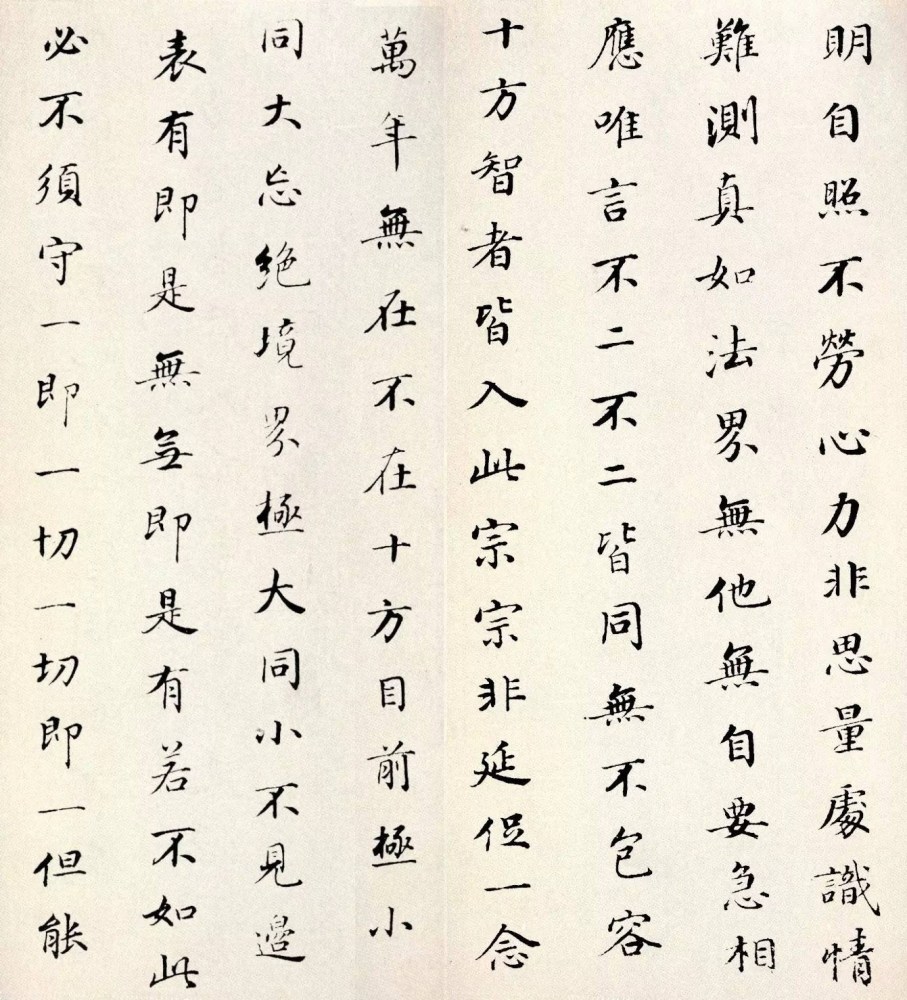 明自照不勞心力非思量處識情
難測真如法界無他無自要急相
應唯言不二不二皆同無不包容
十方智者皆入此宗宗非延促一念
萬年無在不在十方目前極小
同大忘絕境界極大同小不見邊
表有即是無無即是有若不如此
必不須守一即一切一切即一但能